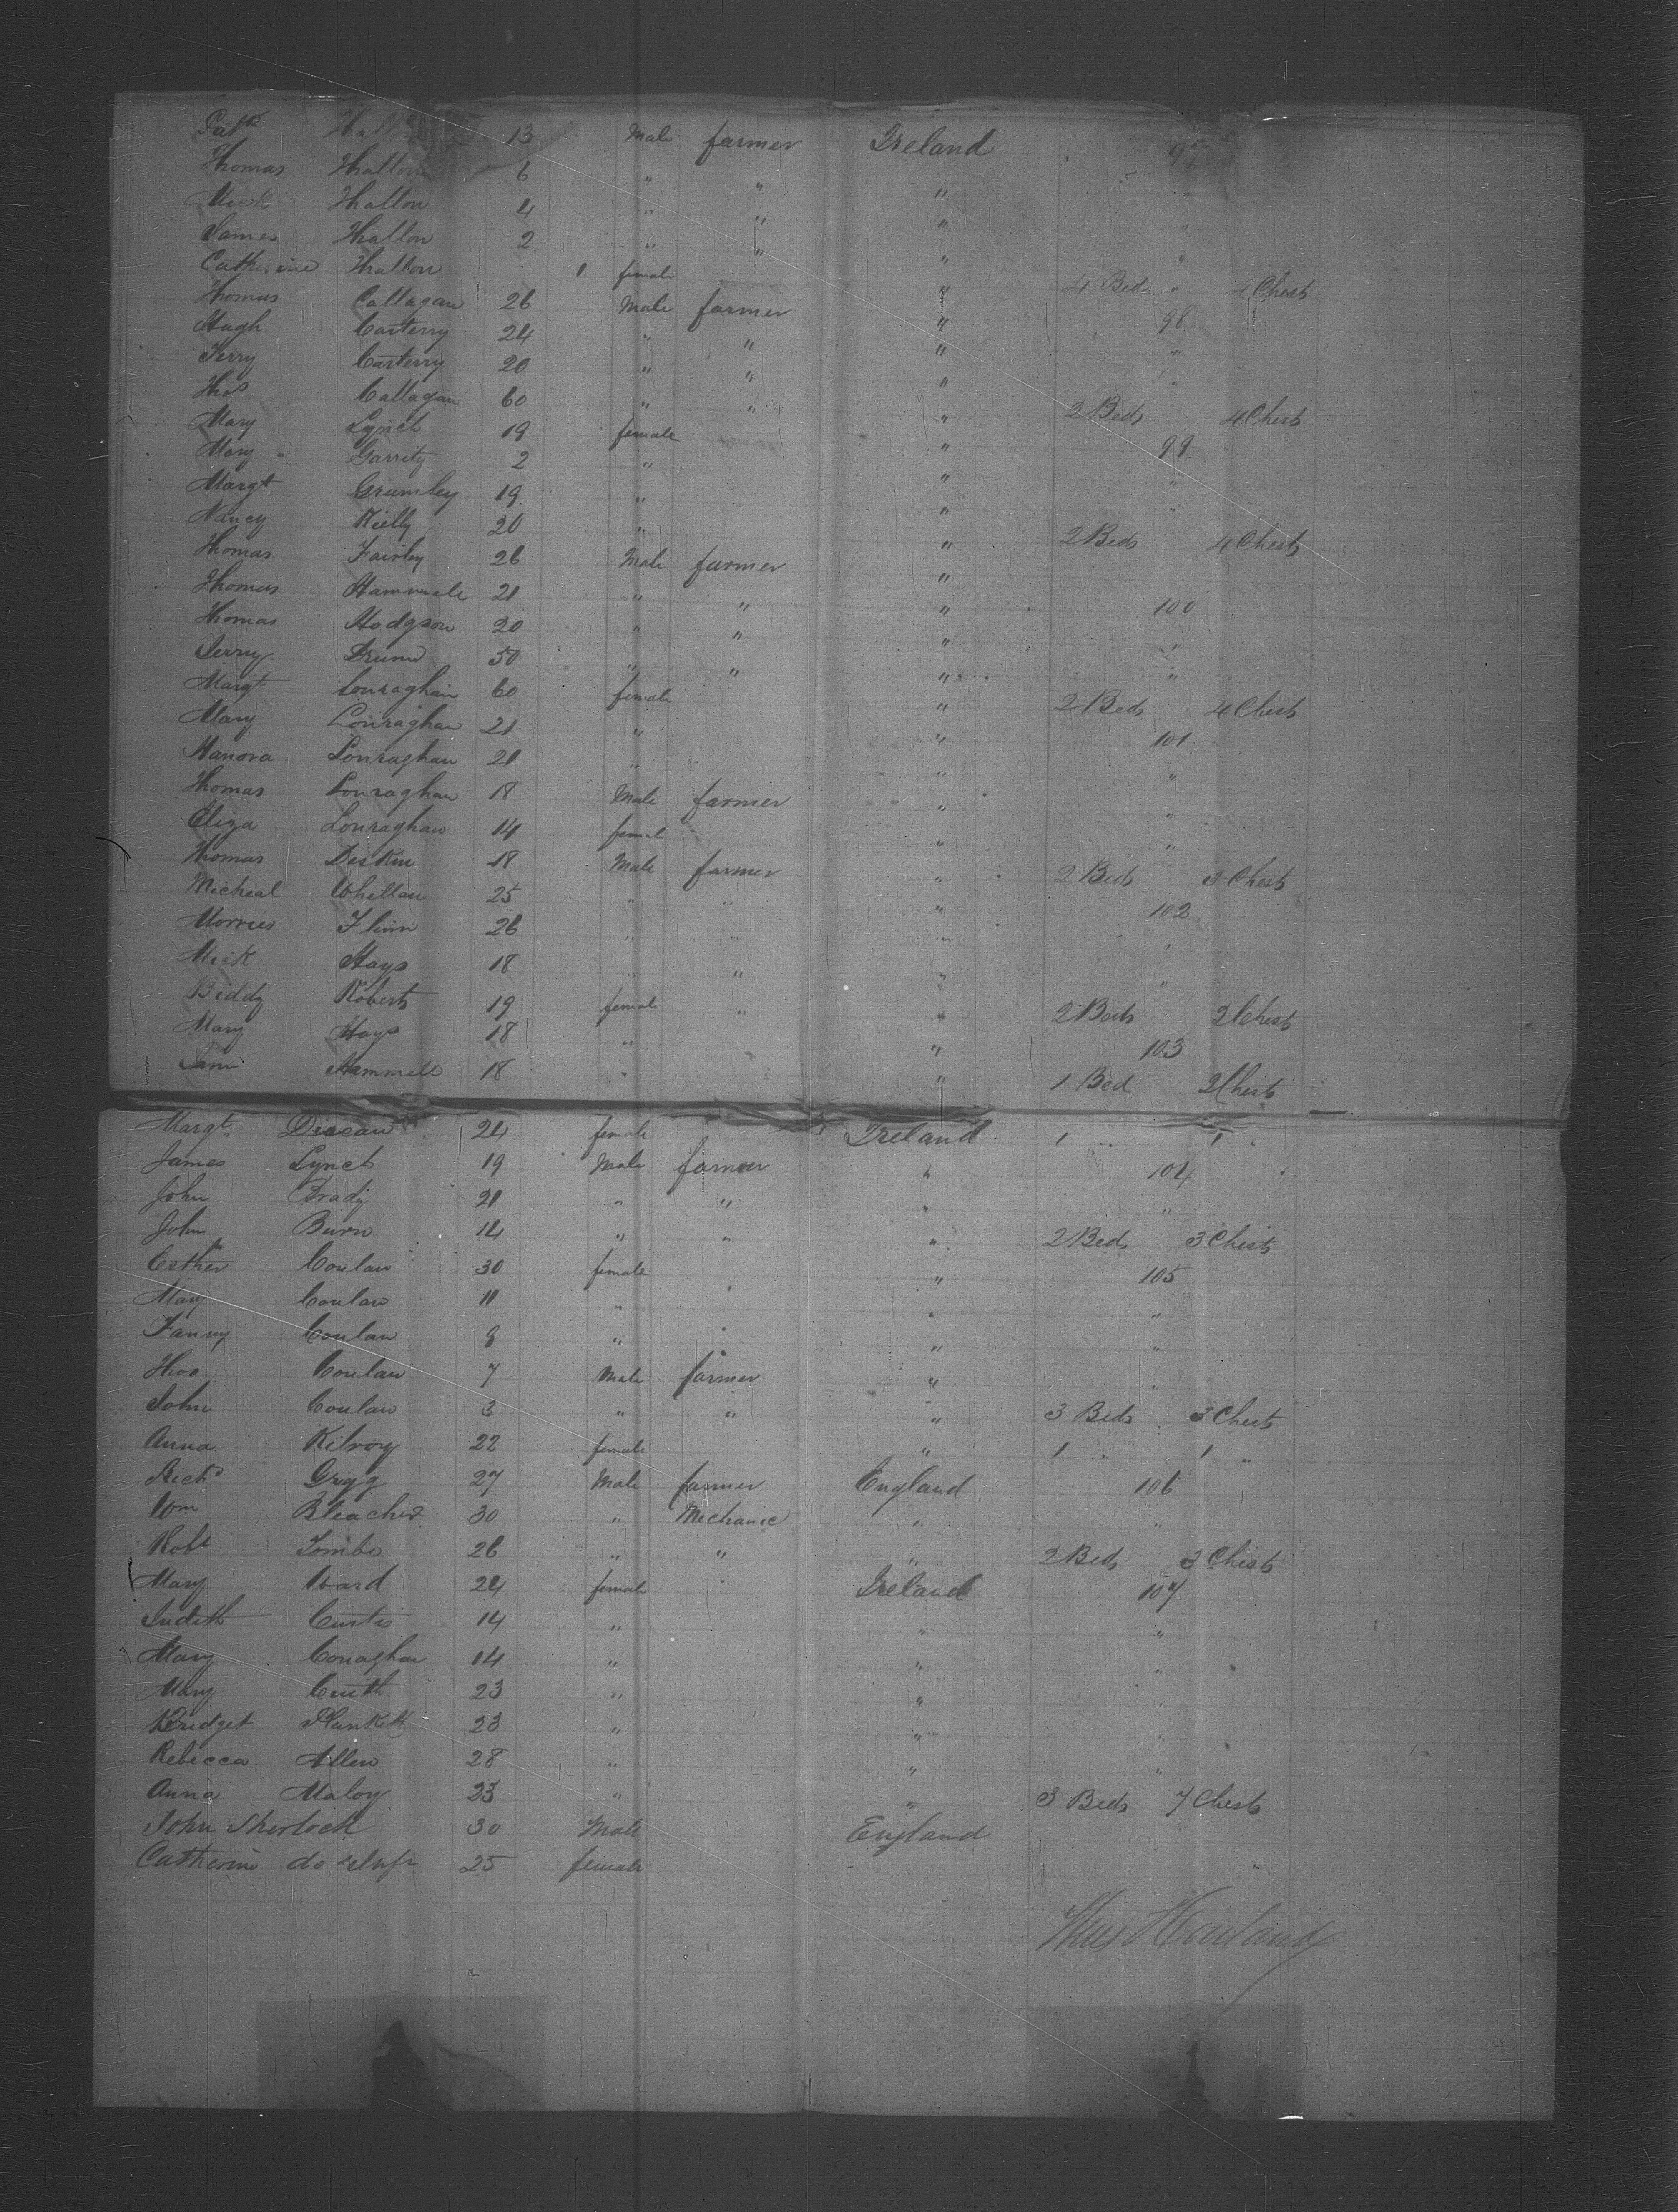 Patk Hallon 13 Male farmer Ireland 97
Thomas Hallon 6 " " "
Mick Hallon 4 " " " "
James Hallon 2 " " " "
Catherine Hallon 1 female " 4 Bed " 4 Chests
Thomas Callagan 26 Male farmer " 98
Hugh Casterry 24 " " " "
Terry Casterry 20 " " " "
Thos Callagan 60 " " " 2 Beds 4 Chests
Mary Lynch 19 female " 99
Mary Garrity 2 " " "
Margt Grumley 19 " " "
Nancy Kielly 20 " " 2 Beds 4 Chests
Thomas 26 Male farmer "
Thomas Hammell 21 " " " 100
Thomas Hodgson 20 " " " "
Jerry 50 " " " "
Margt Louraghan 60 female " 2 Beds 4 Chests
Mary Louraghan 21 " " 101
Hanora Louraghan 21 " " "
Thomas Louraghan 18 Male farmer " "
Eliza Louraghan 14 female " "
Thomas Deskin 18 Male farmer " 2 Beds 3 Chests
Micheal Whellan 25 " " " 102
Morries Flinn 26 " " " "
Mick Hays 18 " " " "
Biddy Roberts 19 female " " 2 Beds 2 Chests
Mary Hays 18 " " 103
Hammell 18 " " 1 Bed 2 Chests
Margt 24 female Ireland 1 " 1 "
James Lynch 19 Male farmer " 104
John Brady 21 " " " "
John Burn 14 " " " 2 Beds 3 Chests
Esther Coulan 30 female " 105
Mary Coulan 11 " " "
Fanny Coulan 8 " " "
Thos Coulan 7 Male farmer " "
John Coulan 3 " " " 3 Beds 3 Chests
Anna Kilroy 22 female " 1 " 1 "
Richd Grigg 27 Male farmer England 106
Wm Bleacher 30 " Mechanic " "
Robt Tombs 26 " " " 2 Beds 3 Chests
Mary Ward 24 female Ireland 107
Judith Curtis 14 " " "
Mary Conaghan 14 " " "
Mary Cuith 23 " " "
Bridget Plunkett 23 " " "
Rebecca Allen 28 " " "
Anna Maloy 23 " " 3 Beds 7 Chests
John Sherlock 30 Male England
Catherine do & Infr 25 female "
Howland